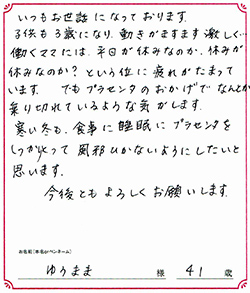 いつもお世話になっております。
子供も3歳になり、動きがますます激しく…
働くママには、平日が休みなのか、休みが
休みなのか？という位に疲れがたまって
います。でもプラセンタのおかげでなんとか
乗り切れているような気がします。
寒い冬も、食事に睡眠にプラセンタを
しっかりとって風邪ひかないようにしたいと
思います。
今後ともよろしくお願いします。
お名前(本名orペンネーム)
ゆうまま 様 41 歳